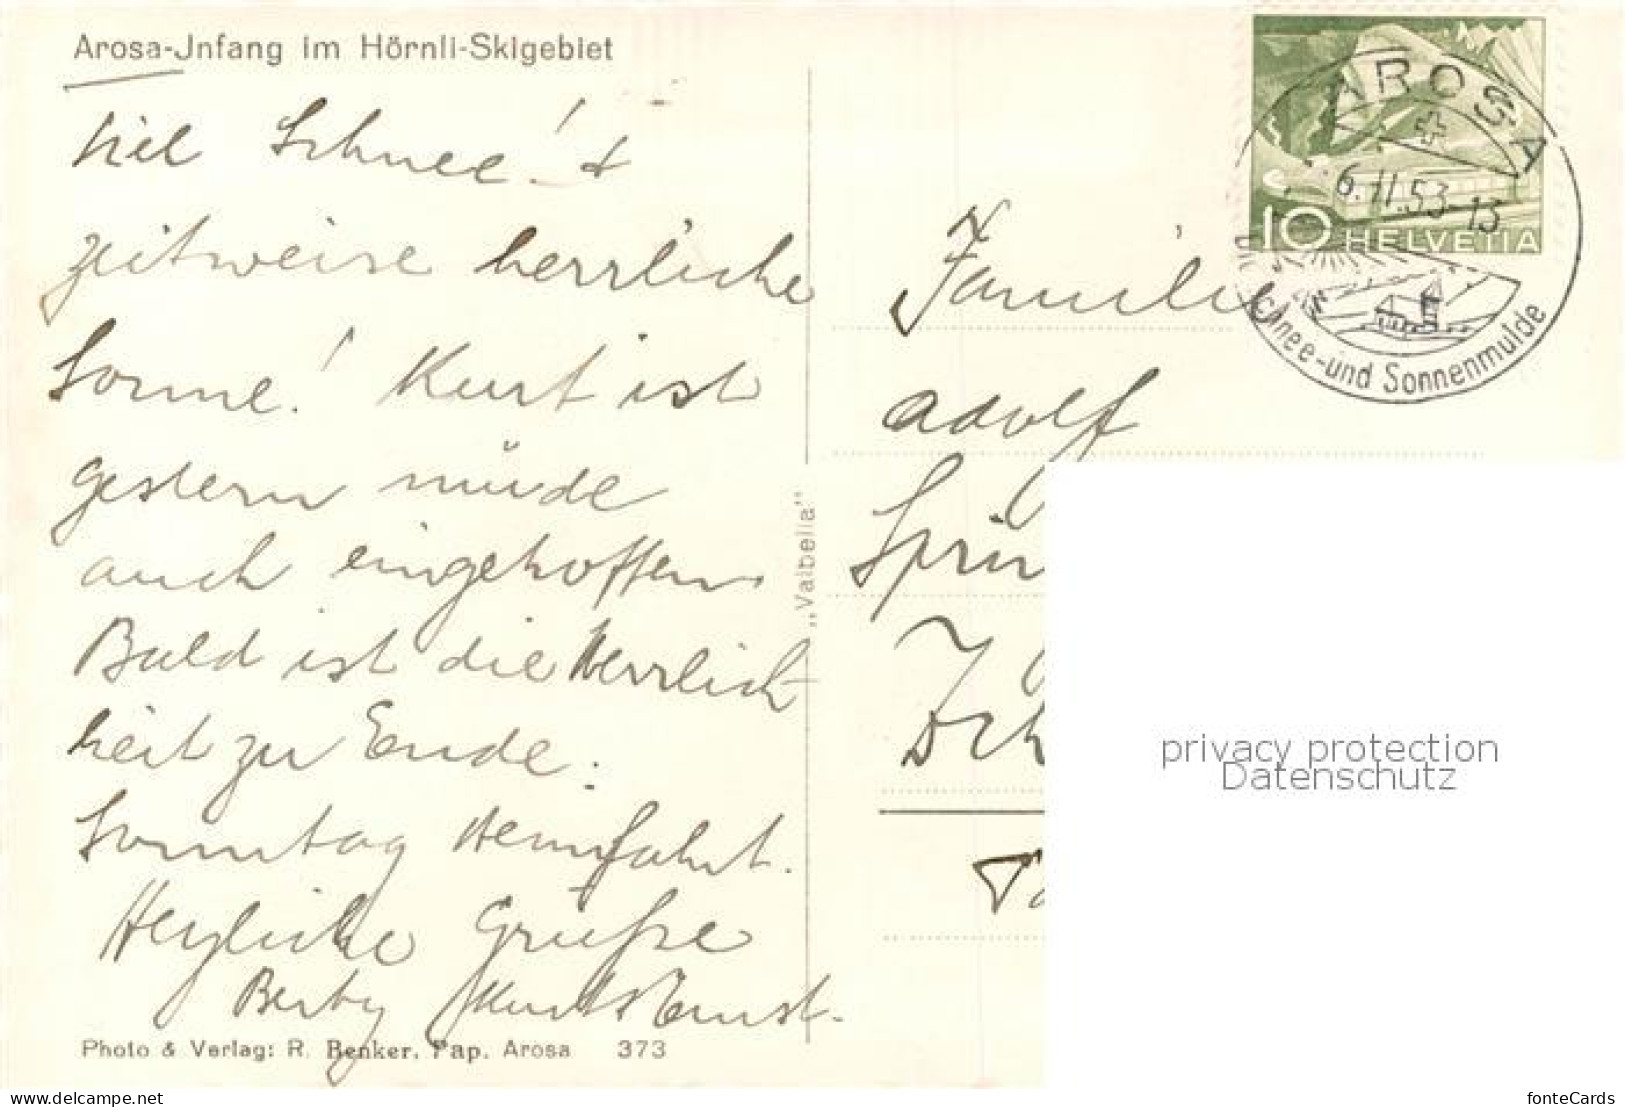 Arosa-Jnfang im Hörnli-Skigebiet
Viel Schnee! &
zeitweise herrliche
Sonne! Kurt ist
gestern müde
auch eingetroffen.
Bald ist die Herrlich
heit zu Ende.
Sonntag Heimfahrt.
Herzliche Grüsse
Berty Kurt & Ernst.
Photo & Verlag: R. Benker, Pap. Arosa 373
„Valbella"
AROSA
6.II.53-13
10 HELVETIA
Die Schnee-und Sonnenmulde
Familie
Adolf
privacy protection
Datenschutz
www.delcampe.net
fonteCards